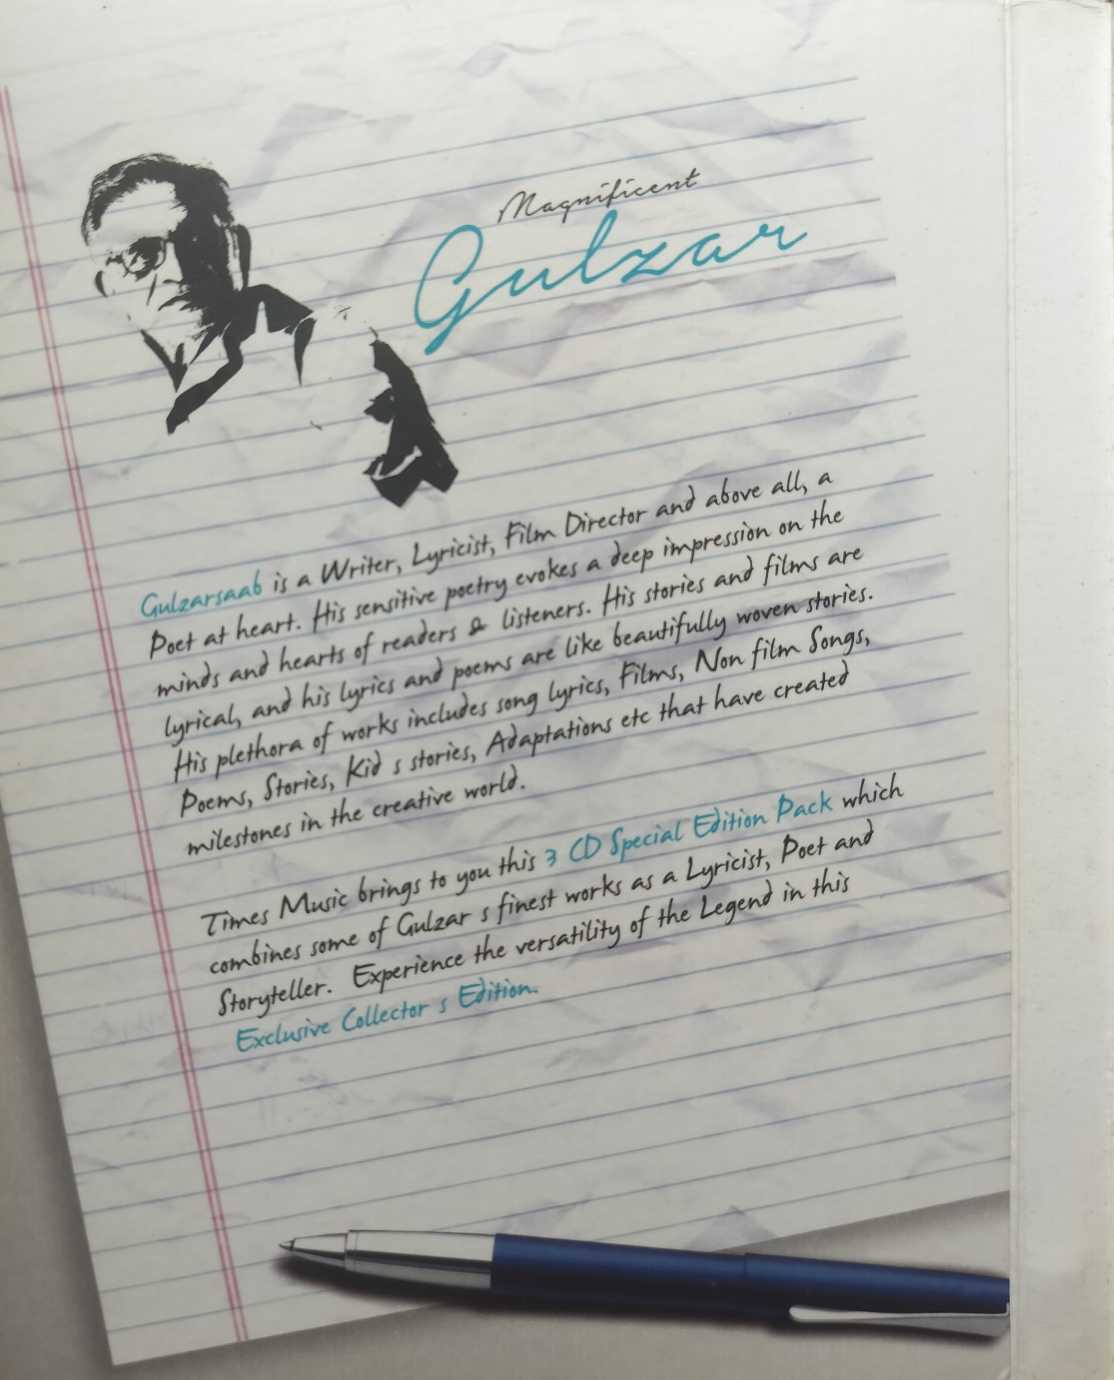 Magnificent
Gulzar
Gulzarsaab is a Writer, Lyricist, Film Director and above all, a
Poet at heart. His sensitive poetry evokes a deep impression on the
minds and hearts of readers & listeners. His stories and films are
lyrical, and his lyrics and poems are like beautifully woven stories.
His plethora of works includes song lyrics, Films, Non film Songs,
Poems, Stories, Kid s stories, Adaptations etc that have created
milestones in the creative world.
Times Music brings to you this 3 CD Special Edition Pack which
combines some of Gulzar s finest works as a Lyricist, Poet and
Storyteller. Experience the versatility of the Legend in this
Exclusive Collector s Edition.